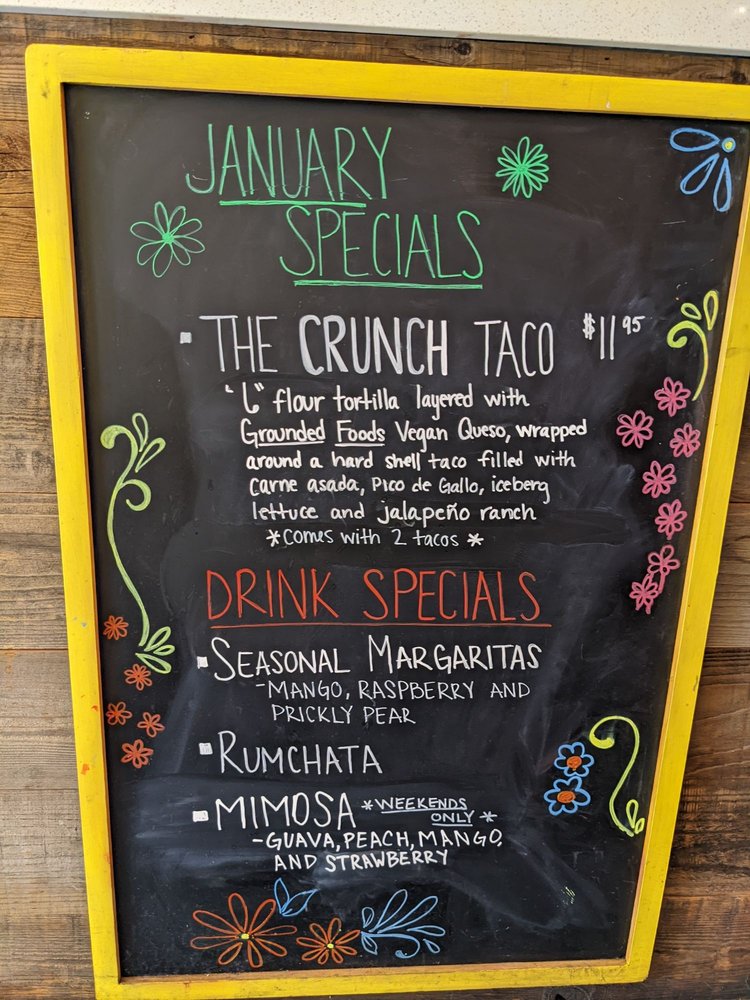 JANUARY
SPECIALS
THE CRUNCH TACO $11 95
6" flour tortilla layered with
Grounded Foods Vegan Queso, wrapped
around a hard shell taco filled with
carne asada, Pico de Gallo, iceberg
lettuce and jalapeño ranch
*comes with 2 tacos *
DRINK SPECIALS
SEASONAL MARGARITAS
-MANGO, RASPBERRY AND
PRICKLY PEAR
RUMCHATA
MIMOSA *WEEKENDS
ONLY *
-GUAVA, PEACH, MANGO,
AND STRAWBERRY